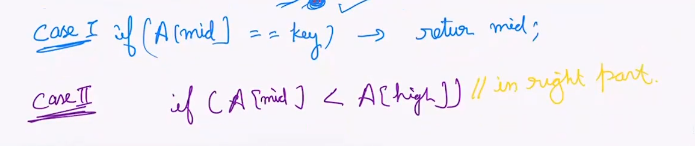 Case I if (A[mid] == key) → retur mid;
Case II if (A[mid] < A[high]) // in right part.